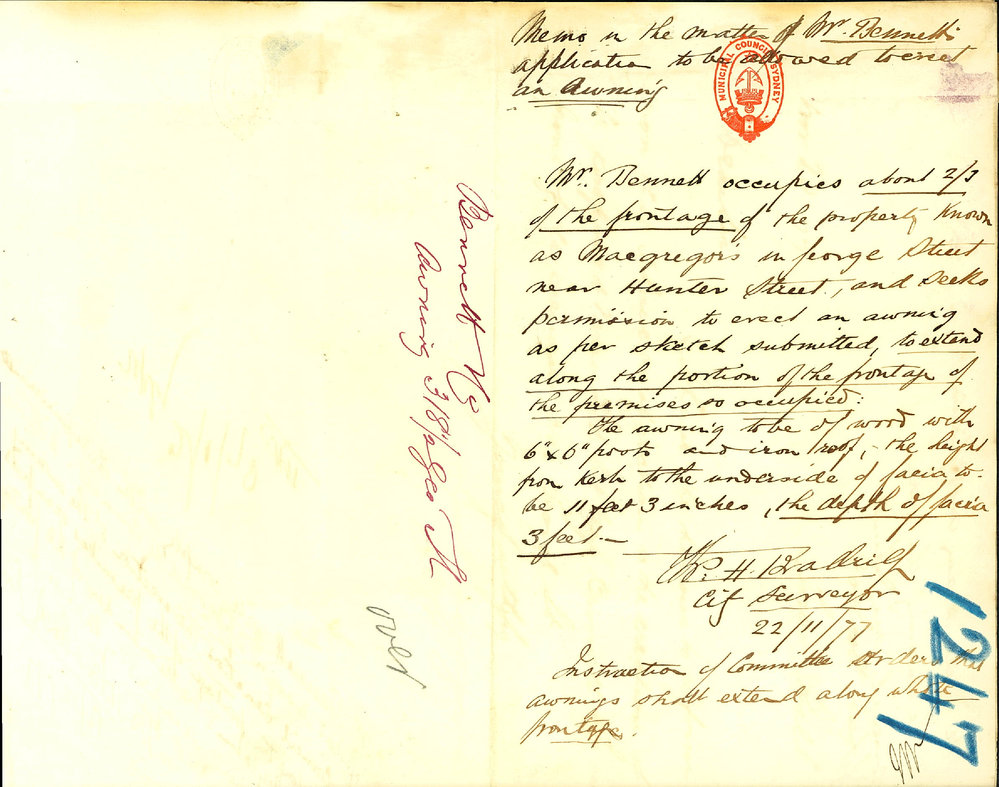 Memo in the matter of Mr. Bennett's
application to be allowed to erect
an Awning
MUNICIPAL COUNCIL SYDNEY
Mr. Bennett occupies about 2/3
of the frontage of the property known
as Macgregor's in George Street
near Hunter Street, and seeks
permission to erect an awning
as per sketch submitted, to extend
along the portion of the frontage of
the premises so occupied.
The awning to be of wood with
6" x 6" posts and iron roof, - the height
from Kerb to the underside of facia to
be 11 feet 3 inches, the depth of facia
3 feet —
City Surveyor
22/11/77
Instruction of Committee orders that
awnings shall extend along whole
frontage.
1247
Bennett
Awning 318 1/2 Geo St
over